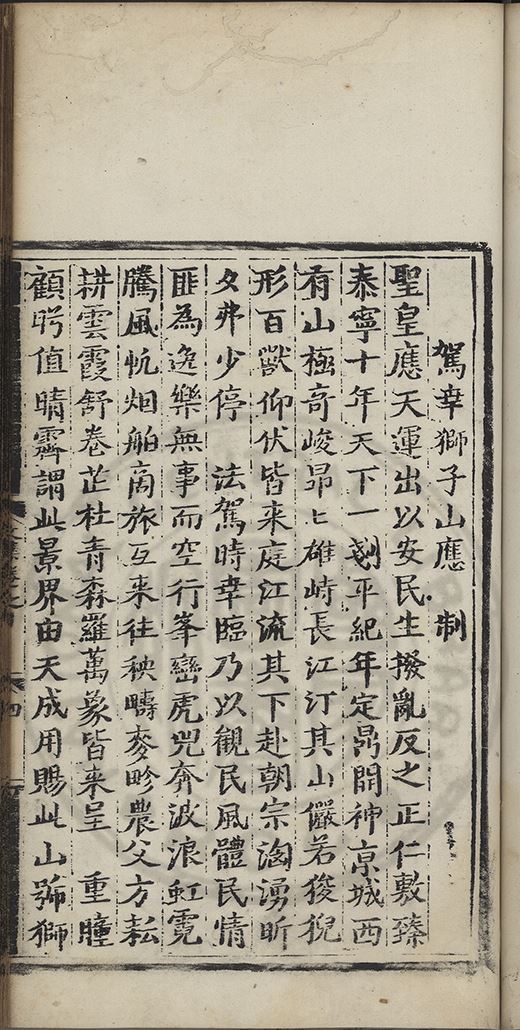 駕幸獅子山應 制
聖皇應天運出以安民生撥亂反之正仁敷臻
泰寧十年天下一剗平紀年定鼎開神京城西
有山極奇峻昂匕雄峙長江汀其山儼若狻猊
形百獸仰伏皆来庭江流其下赴朝宗洶湧昕
夕弗少停 法駕時幸臨乃以観民風體民情
匪為逸樂無事而空行峯巒虎兕奔波浪虹霓
騰風帆烟舶商旅互来往秧疇麥畛農父方耘
耕雲霞舒卷芷杜青森羅萬象皆来呈 重瞳
顧盻值晴霽謂此景界由天成用賜此山號獅